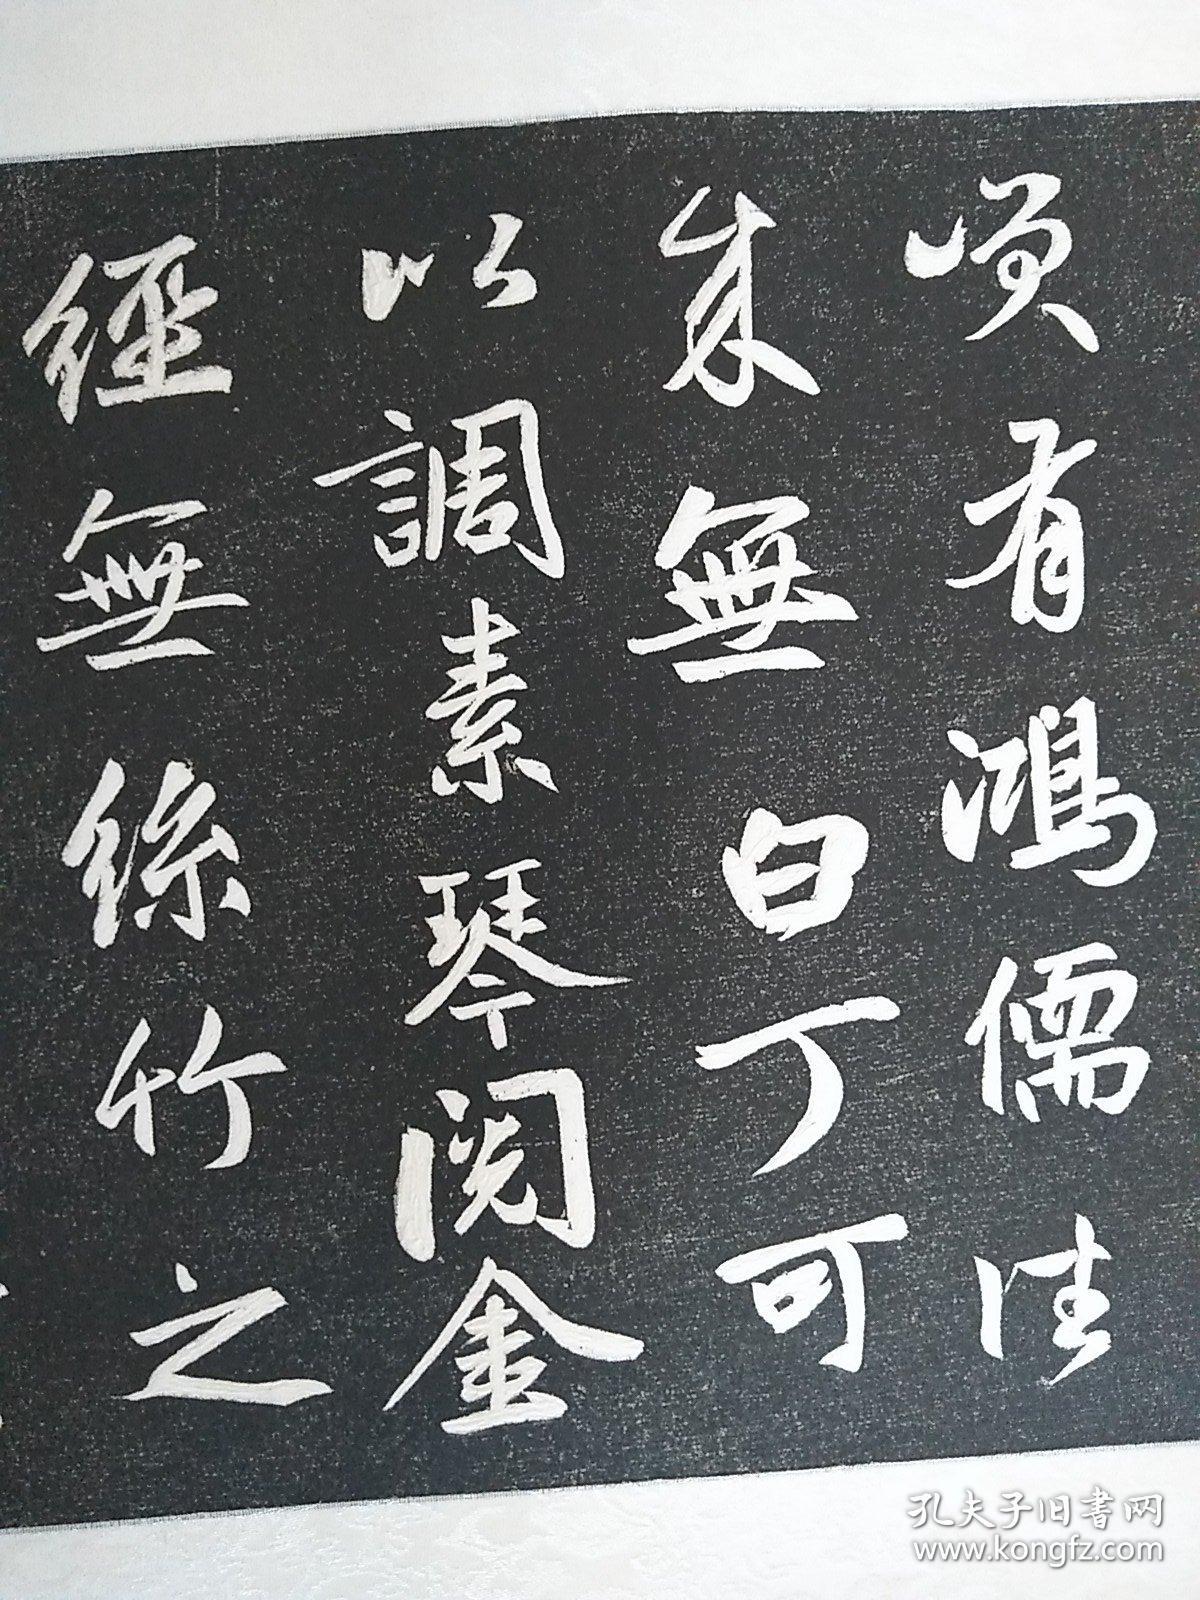 咲有鴻儒往
來無白丁可
以調素琴閱金
經無絲竹之
孔夫子旧書网
www.kongfz.com